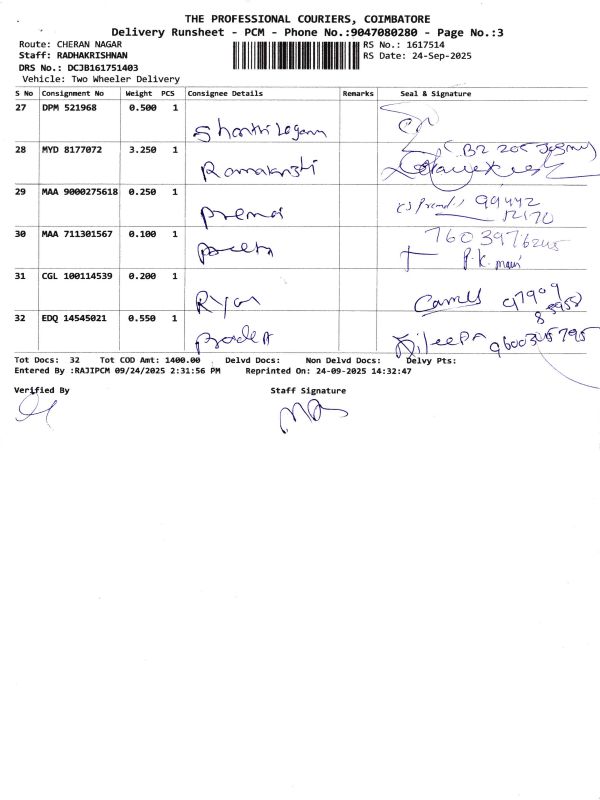 THE PROFESSIONAL COURIERS, COIMBATORE
Delivery Runsheet - PCM - Phone No.:9047080280 - Page No.:3
Route: CHERAN NAGAR
RS No.: 1617514
Staff: RADHAKRISHNAN
RS Date: 24-Sep-2025
DRS No.: DCJB161751403
Vehicle: Two Wheeler Delivery
S No Consignment No Weight PCS Consignee Details Remarks Seal & Signature
27 DPM 521968 0.500 1
28 MYD 8177072 3.250 1
B2 205
29 MAA 9000275618 0.250 1
Prema 99442
12170
30 MAA 711301567 0.100 1
P.K. mani
31 CGL 100114539 0.200 1
Ryan 97909
32 EDQ 14545021 0.550 1
Dileepn
Tot Docs: 32 Tot COD Amt: 1400.00 Delvd Docs: Non Delvd Docs: Delvy Pts:
Entered By :RAJIPCM 09/24/2025 2:31:56 PM Reprinted On: 24-09-2025 14:32:47
Verified By Staff Signature